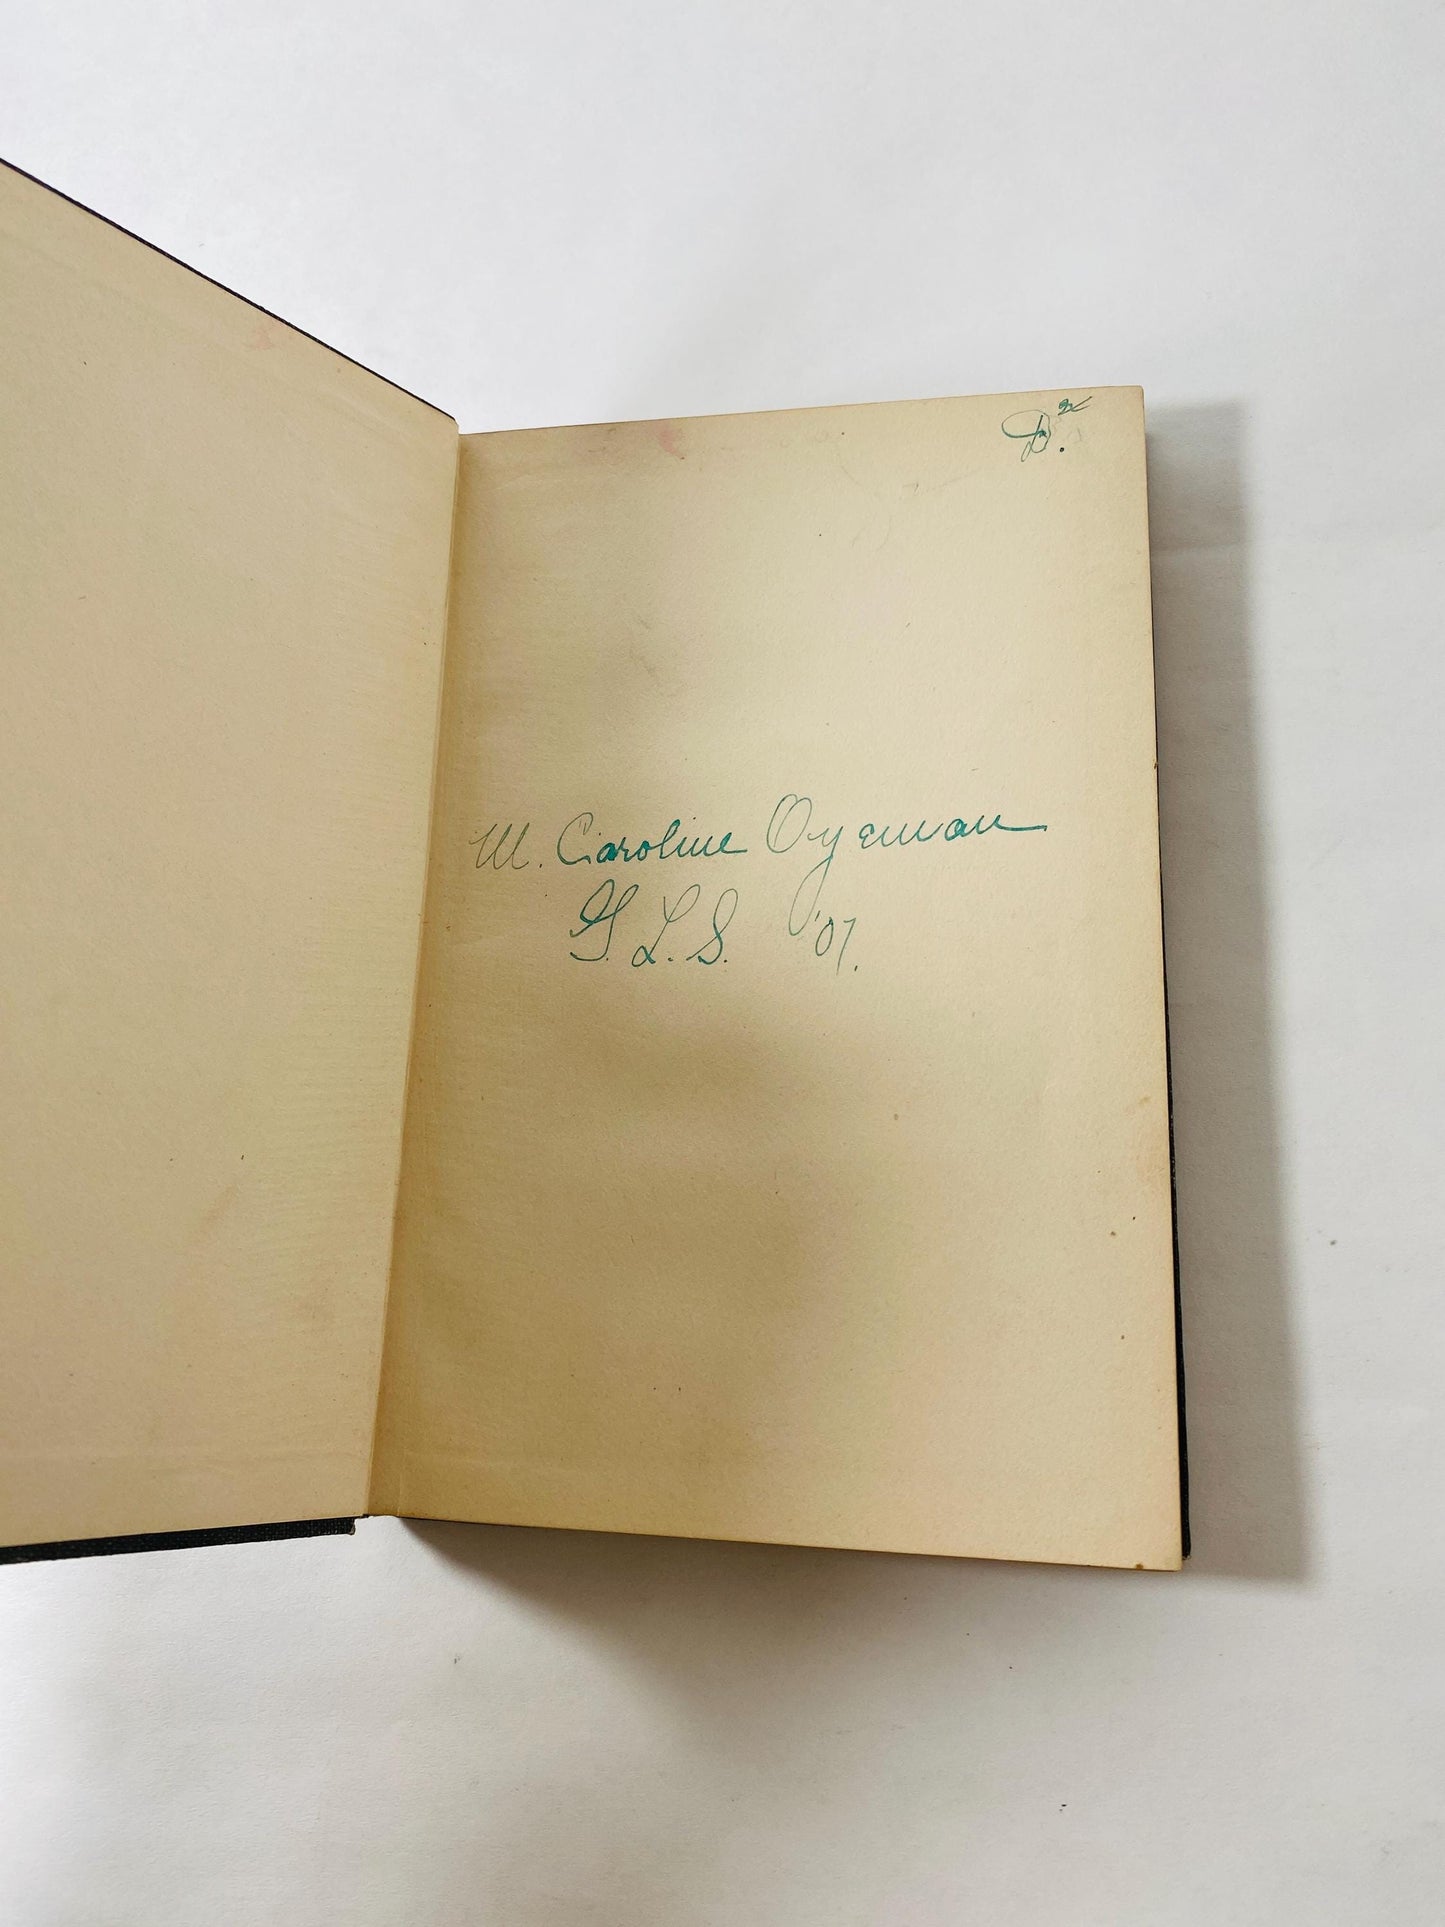 M. Caroline Oyeman
G. L. S. '07.